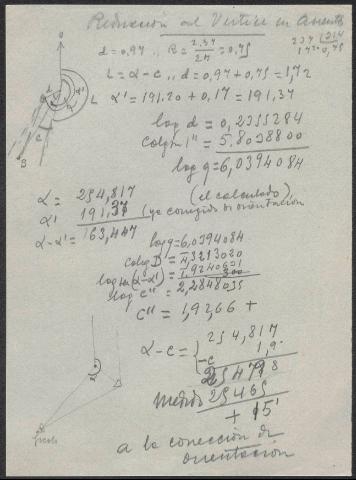 Reducción al Vertice en Asiento
d = 0,97 ,, R = 2,37 / 2π = 0,75
L = α - c ,, d = 0,97 + 0,75 = 1,72
α' = 191.20 + 0,17 = 191,37
log d = 0,2355284
Colg sen 1" = 5.8038800
log q = 6,0394084
α = 254,817
(el calculado)
α' 191,37 (ya corregido de orientación
α - α' = 163,447
log q = 6,0394084
colg D = 4,3213020
log sen (α-α') =
log c" = 2,2848035
c" = 192,66 +
α - c = 254,817
- c 1,9
25479
Medio 25465
+ 15'
a la corrección de
orientación
Escala